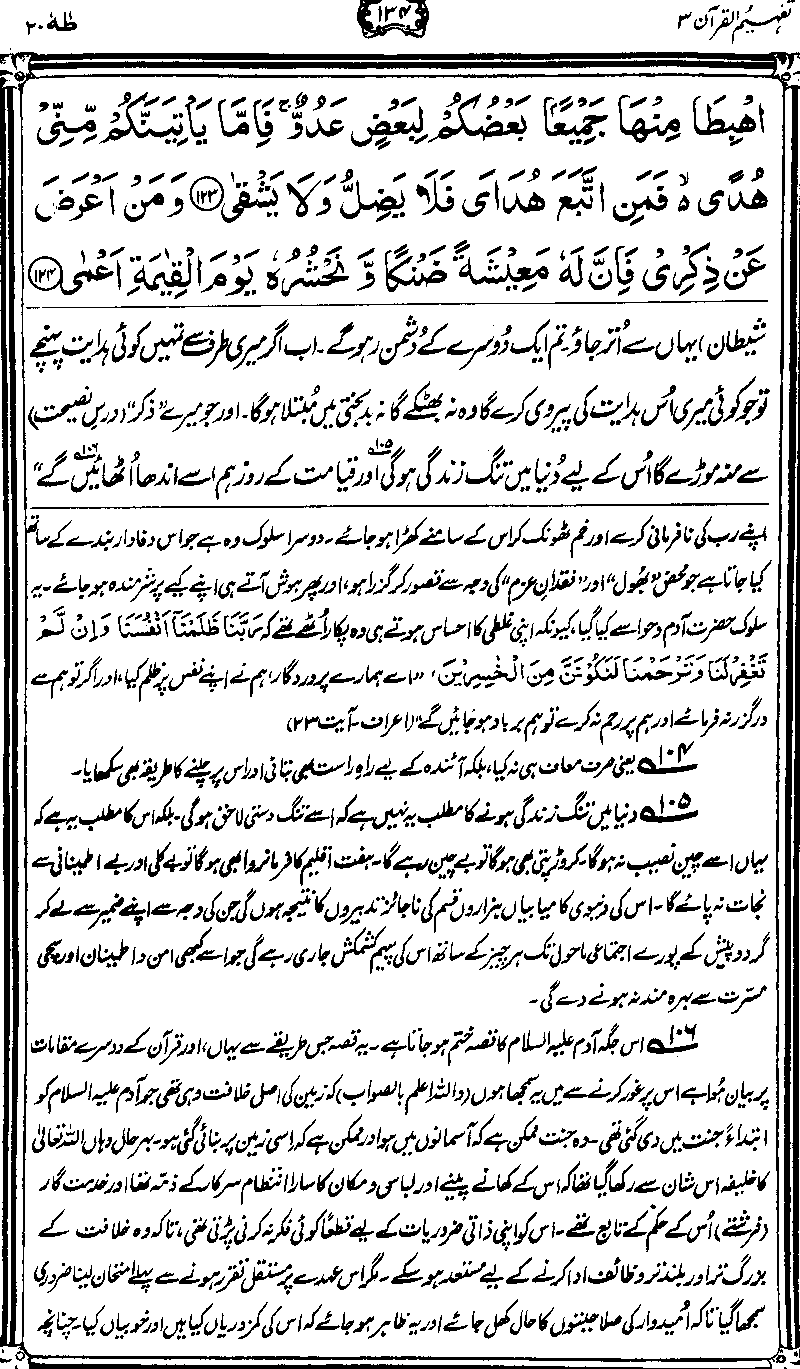 تفہیم القرآن ۳
۱۳۴
طٰهٰ ۲۰
اهْبِطَا مِنْهَا جَمِيْعًاۢ بَعْضُكُمْ لِبَعْضٍ عَدُوٌّ ۚ فَاِمَّا يَاْتِيَنَّكُمْ مِّنِّىْ
هُدًى ۙ۬ فَمَنِ اتَّبَعَ هُدَاىَ فَلَا يَضِلُّ وَلَا يَشْقٰى ۝۱۲۳ وَمَنْ اَعْرَضَ
عَنْ ذِكْرِىْ فَاِنَّ لَهٗ مَعِيْشَةً ضَنْكًا وَّ نَحْشُرُهٗ يَوْمَ الْقِيٰمَةِ اَعْمٰى ۝۱۲۴
شیطان) یہاں سے اُتر جاؤ۔ تم ایک دُوسرے کے دُشمن رہو گے۔ اب اگر میری طرف سے تمہیں کوئی ہدایت پہنچے
تو جو کوئی میری اُس ہدایت کی پیروی کرے گا وہ نہ بھٹکے گا نہ بدبختی میں مُبتلا ہو گا۔ اور جو میرے ”ذکر“ (درسِ نصیحت)
سے منہ موڑے گا اُس کے لیے دُنیا میں تنگ زندگی ہو گی ۱۰۵؎ اور قیامت کے روز ہم اسے اندھا اُٹھائیں ۱۰۶؎ گے“
اپنے رب کی نافرمانی کرے اور خم ٹھونک کر اس کے سامنے کھڑا ہو جائے۔ دوسرا سلوک وہ ہے جو اس وفادار بندے کے ساتھ
کیا جاتا ہے جو محض ”بھُول“ اور ”فقدانِ عزم“ کی وجہ سے قصور کر گزرا ہو، اور پھر ہوش آتے ہی اپنے کیے پر شرمندہ ہو جائے۔ یہ
سلوک حضرت آدم و حوا سے کیا گیا، کیونکہ اپنی غلطی کا احساس ہوتے ہی وہ پکار اُٹھے تھے کہ رَبَّنَا ظَلَمْنَآ اَنْفُسَنَا وَاِنْ لَّمْ
تَغْفِرْ لَنَا وَتَرْحَمْنَا لَنَكُوْنَنَّ مِنَ الْخٰسِرِيْنَ، ”اے ہمارے پروردگار، ہم نے اپنے نفس پر ظلم کیا، اور اگر تو ہم سے
درگزر نہ فرمائے اور ہم پر رحم نہ کرے تو ہم برباد ہو جائیں گے“ (اعراف۔ آیت ۲۳)
۱۰۴؎ یعنی صرف معاف ہی نہ کیا، بلکہ آئندہ کے لیے راہِ راست بھی بتائی اور اس پر چلنے کا طریقہ بھی سکھایا۔
۱۰۵؎ دنیا میں تنگ زندگی ہونے کا مطلب یہ نہیں ہے کہ اسے تنگ دستی لاحق ہو گی۔ بلکہ اس کا مطلب یہ ہے کہ
یہاں اسے چین نصیب نہ ہو گا۔ کروڑ پتی بھی ہو گا تو بے چین رہے گا۔ ہفت اقلیم کا فرمانروا بھی ہو گا تو بے کلی اور بے اطمینانی سے
نجات نہ پائے گا۔ اس کی دنیوی کامیابیاں ہزاروں قسم کی ناجائز تدبیروں کا نتیجہ ہوں گی جن کی وجہ سے اپنے ضمیر سے لے کر
گرد و پیش کے پورے اجتماعی ماحول تک ہر چیز کے ساتھ اس کی پیہم کشمکش جاری رہے گی جو اسے کبھی امن و اطمینان اور سچی
مسرّت سے بہرہ مند نہ ہونے دے گی۔
۱۰۶؎ اس جگہ آدم علیہ السلام کا قصہ ختم ہو جاتا ہے۔ یہ قصہ جس طریقے سے یہاں، اور قرآن کے دوسرے مقامات
پر بیان ہُوا ہے اس پر غور کرنے سے میں یہ سمجھا ہوں (واللہ اعلم بالصواب) کہ زمین کی اصل خلافت وہی تھی جو آدم علیہ السلام کو
ابتداءً جنت میں دی گئی تھی۔ وہ جنت ممکن ہے کہ آسمانوں میں ہو اور ممکن ہے کہ اسی زمین پر بنائی گئی ہو۔ بہرحال وہاں اللہ تعالیٰ
کا خلیفہ اس شان سے رکھا گیا تھا کہ اس کے کھانے پینے اور لباس و مکان کا سارا انتظام سرکار کے ذمہ تھا اور خدمت گار
(فرشتے) اُس کے حکم کے تابع تھے۔ اس کو اپنی ذاتی ضروریات کے لیے قطعًا کوئی فکر نہ کرنی پڑتی تھی، تاکہ وہ خلافت کے
بزرگ تر اور بلند تر وظائف ادا کرنے کے لیے مستعد ہو سکے۔ مگر اس عہدے پر مستقل تقرر ہونے سے پہلے امتحان لینا ضروری
سمجھا گیا تاکہ اُمیدوار کی صلاحیتوں کا حال کھل جائے اور یہ ظاہر ہو جائے کہ اس کی کمزوریاں کیا ہیں اور خوبیاں کیا۔ چنانچہ